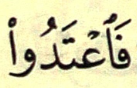 فَٱعْتَدُوا۟